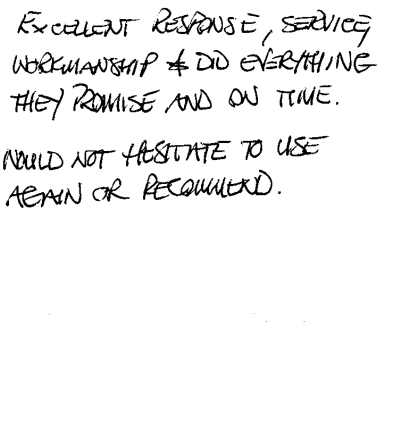 EXCELLENT RESPONSE, SERVICE,
WORKMANSHIP & DID EVERYTHING
THEY PROMISE AND ON TIME.
WOULD NOT HESITATE TO USE
AGAIN OR RECOMMEND.